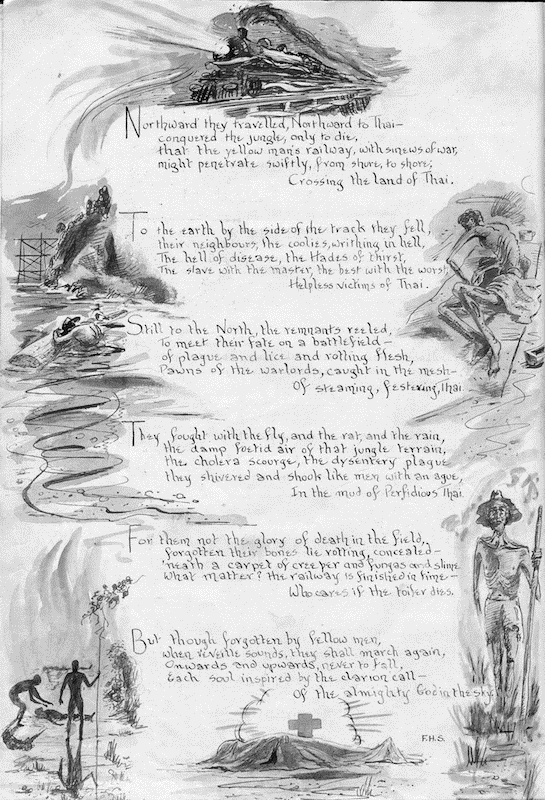 Northward they travelled, Northward to Thai—
conquered the jungle, only to die,
that the yellow man's railway, with sinews of war,
might penetrate swiftly, from shore, to shore;
Crossing the land of Thai.
To the earth by the side of the track they fell,
their neighbours, the coolies, writhing in hell,
The hell of disease, the Hades of thirst,
The slave with the master, the best with the worst,
Helpless victims of Thai.
Still to the North, the remnants reeled,
To meet their fate on a battlefield—
of plague and lice and rotting flesh,
Pawns of the warlords, caught in the mesh—
Of steaming, festering, Thai.
They fought with the fly, and the rat, and the rain,
the damp foetid air of that jungle terrain,
the cholera scourge, the dysentery plague
they shivered and shook like men with an ague,
In the mud of Perfidious Thai.
For them not the glory of death in the field,
forgotten their bones lie rotting, concealed—
'neath a carpet of creeper and fungas and slime
What matter? the railway is finished in time—
Who cares if the toiler dies.
But though forgotten by fellow men,
when reveille sounds, they shall march again,
Onwards and upwards, never to fall,
Each soul inspired by the clarion call—
Of the almighty God in the sky.
F.H.S.